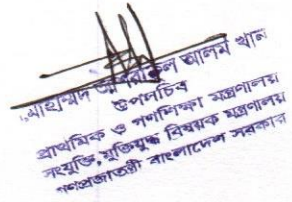 মোহাম্মদ আলম খান
উপসচিব
প্রাথমিক ও গণশিক্ষা মন্ত্রণালয়
সংযুক্তি, মুক্তিযুদ্ধ বিষয়ক মন্ত্রণালয়
গণপ্রজাতন্ত্রী বাংলাদেশ সরকার